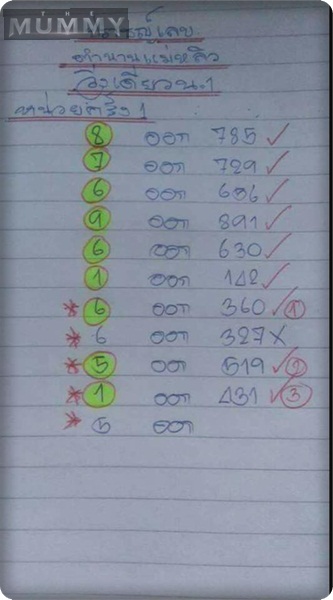 THE
MUMMY
ตำนานแม่หลิว
วิ่งเดี่ยวน.1
หน่วยครั้ง 1
8 ออก 785 ✓
7 ออก 729 ✓
6 ออก 606 ✓
9 ออก 891 ✓
6 ออก 630 ✓
1 ออก 142 ✓
* 6 ออก 360 ✓ 1
* 6 ออก 327 X
* 5 ออก 519 ✓ 2
* 1 ออก 431 ✓ 3
* 5 ออก